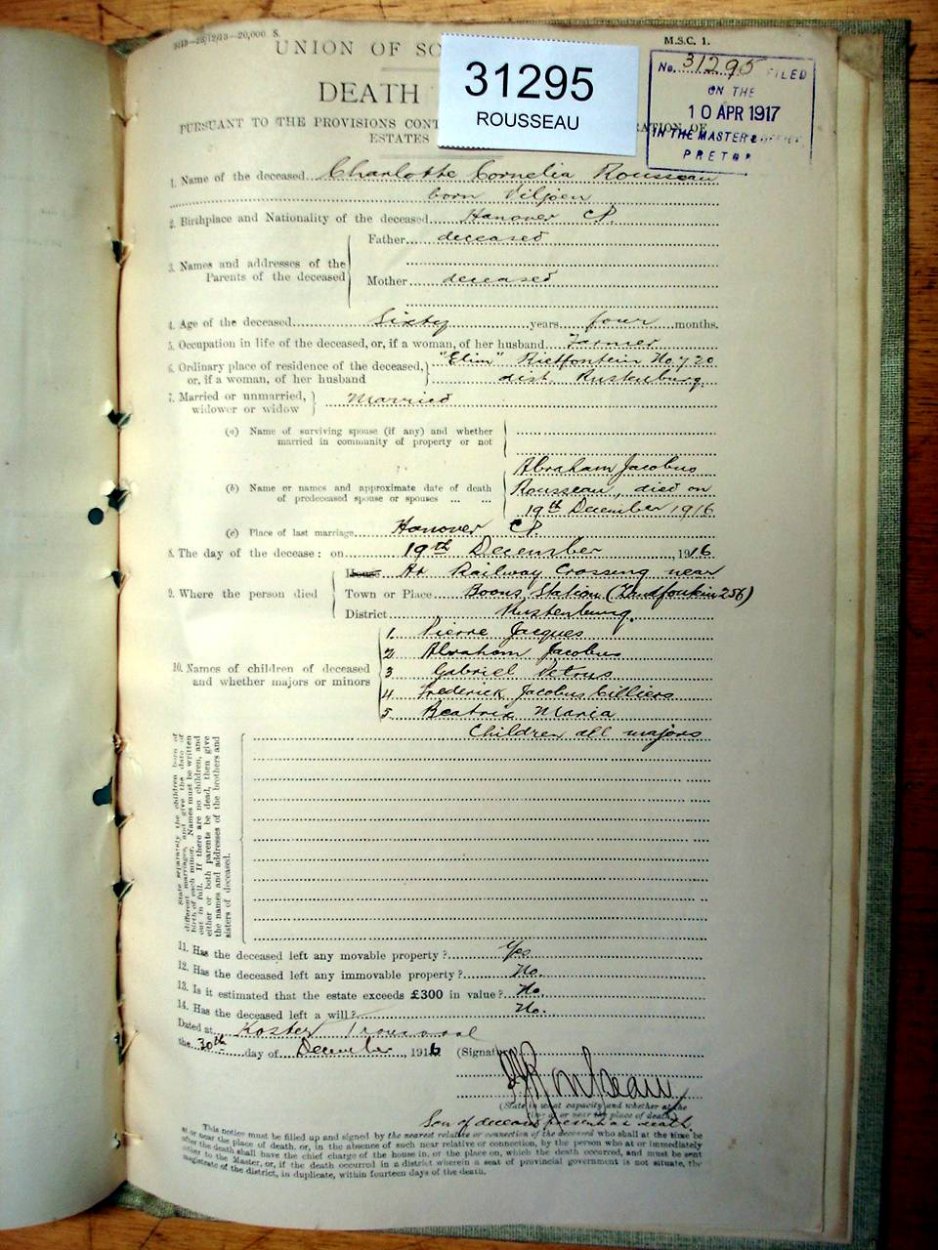 S. M.S.C. 1.
UNION OF SO
31295
ROUSSEAU
No. 31295 FILED
ON THE
10 APR 1917
IN THE MASTER'S OFFICE
PRETOR
DEATH
PURSUANT TO THE PROVISIONS CONT RATION OF
ESTATES
1. Name of the deceased Charlotte Cornelia Rousseau
born Viljoen
2. Birthplace and Nationality of the deceased Hanover CP.
Father deceased
3. Names and addresses of the
Parents of the deceased
Mother deceased
4. Age of the deceased Sixty years four months.
5. Occupation in life of the deceased, or, if a woman, of her husband Farmer
6. Ordinary place of residence of the deceased, "Elim" Rietfontein No 720
or, if a woman, of her husband dist. Rustenburg
7. Married or unmarried, Married
widower or widow
(a) Name of surviving spouse (if any) and whether
married in community of property or not
Abraham Jacobus
(b) Name or names and approximate date of death Rousseau, died on
of predeceased spouse or spouses ... ... 19th December 1916
(c) Place of last marriage Hanover CP.
8. The day of the decease: on 19th December 1916
House At Railway Crossing near
9. Where the person died Town or Place Boons Station 256)
District Rustenburg.
1. Pierre Jacques
2 Abraham Jacobus
10. Names of children of deceased 3 Gabriel Petrus
and whether majors or minors 4 Frederick Jacobus Cilliers
5 Beatrix Maria
Children all majors
State separately the children born of
different marriages, and give the date of
birth of each minor. Names must be written
out in full. If there are no children, and
either or both parents be dead, then give
the names and addresses of the brothers and
sisters of deceased.
11. Has the deceased left any movable property? Yes
12. Has the deceased left any immovable property? No
13. Is it estimated that the estate exceeds £300 in value? No
14. Has the deceased left a will? No.
Dated at Koster Transvaal
the 30th day of December, 1916 (Signat
Rousseau
(State in what capacity and whether at the
or near the place of death).
Son of deceased present at death.
This notice must be filled up and signed by the nearest relative or connection of the deceased who shall at the time be
at or near the place of death, or, in the absence of such near relative or connection, by the person who at or immediately
after the death shall have the chief charge of the house in, or the place on, which the death occurred, and must be sent
either to the Master, or, if the death occurred in a district wherein a seat of provincial government is not situate, the
magistrate of the district, in duplicate, within fourteen days of the death.